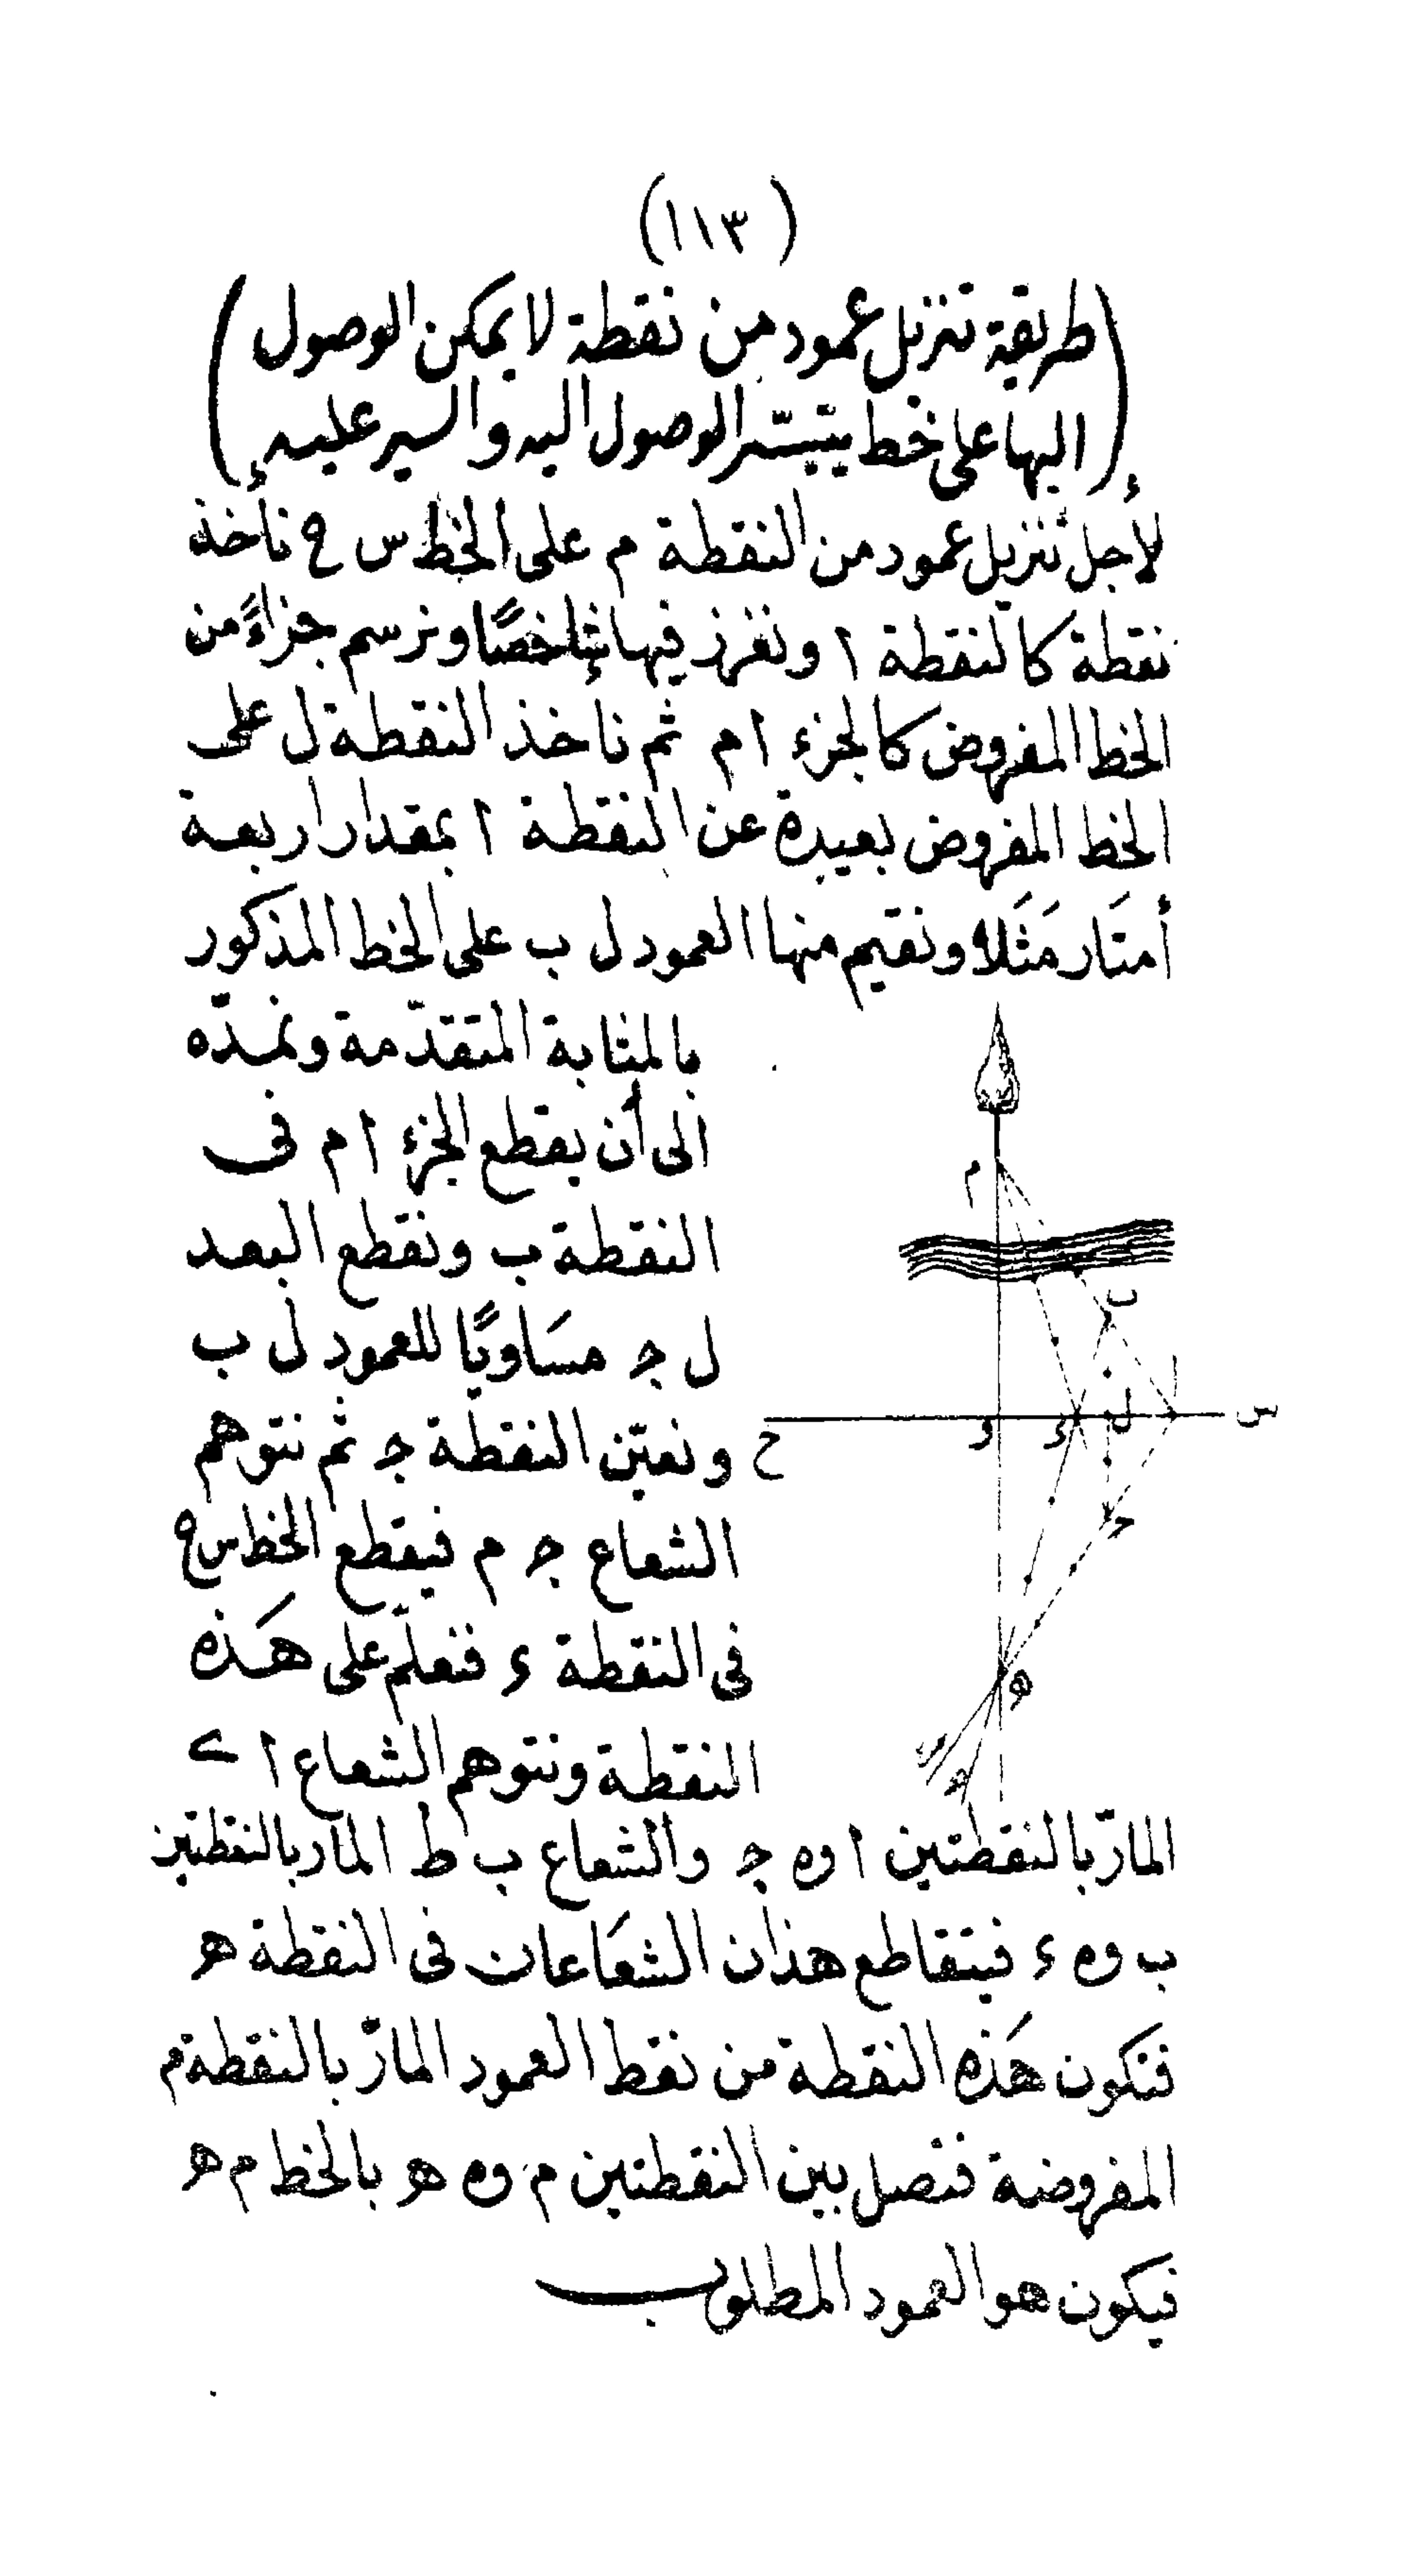 (١١٣)
(طريقة تنزيل عمود من نقطة لا يمكن الوصول
اليها على خط يتيسّر الوصول اليه والسير عليه)
لأجل تنزيل عمود من النقطة م على الخط س ح نأخذ
نقطة كالنقطة ا ونغرز فيها شاخصًا ونرسم جزاءً من
الخط المفروض كالجزء ا م ثم ناخذ النقطة ل على
الخط المفروض بعيدة عن النقطة ا بمقدار اربعة
أمتَار مَثَلا ونقيم منها العمود ل ب على الخط المذكور
بالمثابة المتقدّمة ونمدّه
الى أن يقطع الجزء ا م فى
النقطة ب ونقطع البعد
ل ج مسَاويًا للعمود ل ب
ونعيّن النقطة ج ثم نتوهم
الشعاع ج م فيقطع الخط س ح
فى النقطة ء فنعلّم على هَذه
النقطة ونتوهم الشعاع ا ك
المارّ بالنقطتين ا و ه ج والشعاع ب ط المار بالنقطتين
ب و ه ء فيتقاطع هذان الشعَاعان فى النقطة هـ
فتكون هَذه النقطة من نقط العمود المارّ بالنقطة م
المفروضة فنصل بين النقطتين م و ه هـ بالخط م هـ
فيكون هو العمود المطلوب
م
ب
ا
س
ل
ء
و
ح
ج
هـ